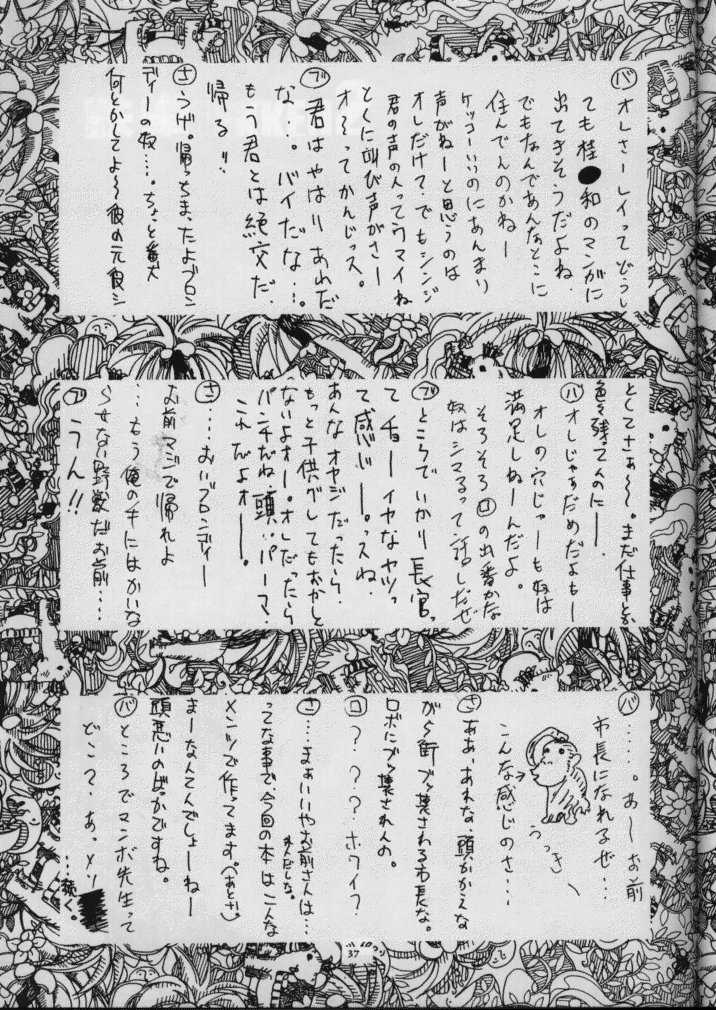 バ オレさーレイってどーし
ても桂●和のマンガに
出てきそうだよね、
でもなんであんなとこに
住んでんのかねー
ケッコーいいのにあんまり
声がねーと思うのは
オレだけで?でもシンジ
君の声の人ってウマイね
とくに叫び声がさー
オーってかんじっス。
ブ 君はやはりあれだ
な…。バイだな…。
もう君とは絶交だ、
帰る!!
さ うげ。帰っちまったよブロン
ディーの奴…。ちょと
何とかしてよ〜彼の元
としてさぁ〜。まだ仕事とか
色々残ってんのにー。
バ オレじゃぁだめだよもー
オレの穴じゃーも奴は
満足しねーんだよ。
そろそろロの出番かな
奴はシマるって話しだぜ
ブ ところでいかり長官っ
てチョーイヤなヤツっ
て感じー。っスね、
あんなオヤジだったら、
もっと子供グレてもおかしく
ないよォー。オレだったら
パンチだね、頭・・パーマ・
これだよオー。
さ ・・・おいブロンディー
お前マジで帰れよ
…もう俺の手にはおえな
らせない野獣だお前……
ブ うん!!
バ ……。あーお前
市長になれるぜ…
こんな感じのさ…
うっきー
さ ああ、あれな、頭かかえな
がら街ブッ壊される市長な。
ロボにブッ壊されんの。
ロ ????ホワイ?
さ …まぁいいやお前さんは…
ってな事で今回の本はこんな
メンツで作ってます。(あとがき)
まーなんてんでしょーねー
頭悪いのばっかですね。
バ ところでマンボ先生って
どこ?、あっメソ
…続く。
37